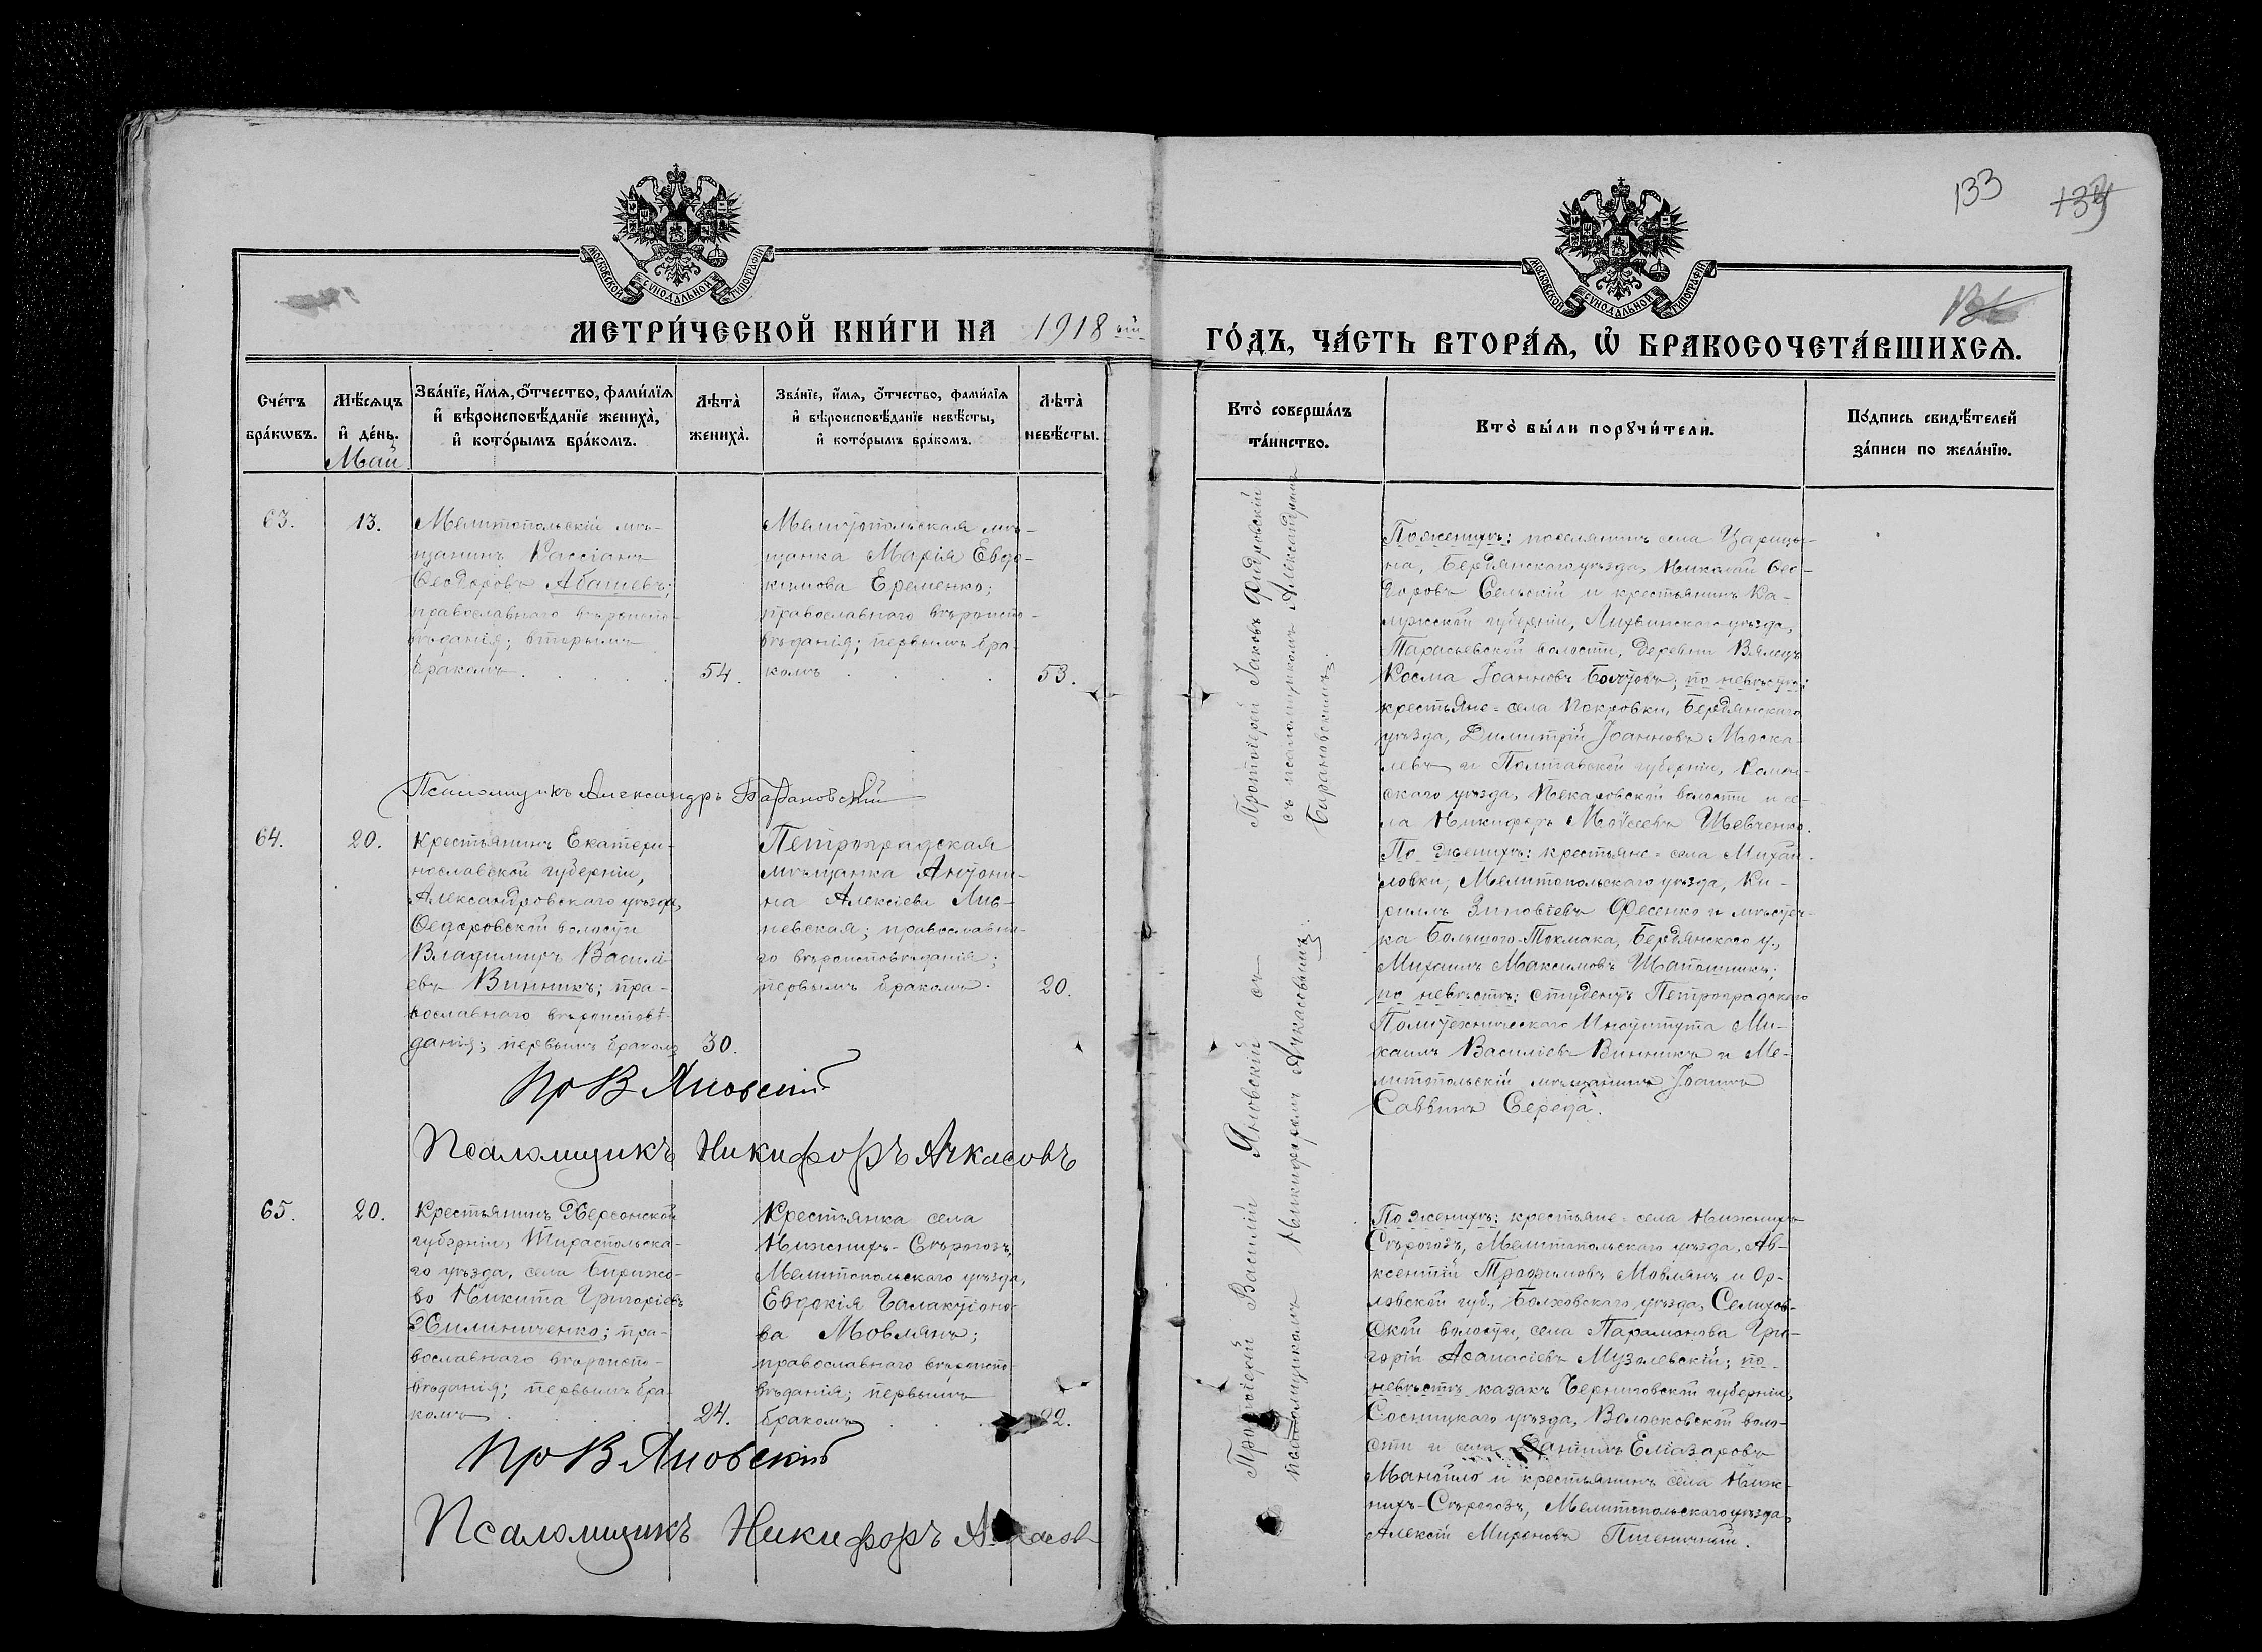 133
139
МОСКОВСКОЙ СУНОДАЛЬНОЙ ТИПОГРАФІИ
МОСКОВСКОЙ СУНОДАЛЬНОЙ ТИПОГРАФІИ
МЕТРИ́ЧЕСКОЙ КНИ́ГИ НА 1918 ый
ГО́ДЪ, ЧА́СТЬ ВТОРА́Ѧ, Ѡ҆ БРАКОСОЧЕТА́ВШИХСѦ.
Сче́тъ
бра́кѡвъ.
Мѣ́сѧцъ
и҆ де́нь.
Май
Зва́нїе, и҆́мѧ, ѻ҆́тчество, фами́лїѧ
и҆ вѣроисповѣ́данїе жениха̀,
и҆ кото́рымъ бра́комъ.
Лѣта̀
жениха̀.
Зва́нїе, и҆́мѧ, ѻ҆́тчество, фами́лїѧ
и҆ вѣроисповѣ́данїе невѣ́сты,
и҆ кото́рымъ бра́комъ.
Лѣта̀
невѣ́сты.
Кто̀ соверша́лъ
та́инство.
Кто̀ бы́ли порꙋчи́тели.
По́дпись свидѣ́телей
за́писи по жела́нїю.
63.
13.
Мелитопольскій мѣ-
щанинъ Кассіанъ
Ѳеодоровъ Абашевъ;
православнаго вѣроиспо-
вѣданія; вторымъ
бракомъ
54.
Мелитопольская мѣ-
щанка Марія Евдо-
кимова Еременко;
православнаго вѣроиспо-
вѣданія; первымъ бра-
комъ
53.
Протоіерей Іаковъ
съ псаломщикомъ Александромъ
Барановскимъ.
По женихѣ: поселянинъ села Царицы-
на, Бердянскаго уѣзда, Николай Ѳео-
доровъ Сельскій и крестьянинъ Ка-
лужской губерніи, Лихвинскаго уѣзда,
волости, деревни
Косма Іоанновъ по невѣстѣ:
крестьяне = села Покровки, Бердянскаго
уѣзда, Димитрій Іоанновъ Моска-
левъ и Полтавской губерніи,
скаго уѣзда, волости и се-
ла Никифоръ Моѵсеевъ Шевченко.
Псаломщикъ Александръ Барановскій
64.
20.
Крестьянинъ Екатери-
нославской губерніи,
Александровскаго уѣзда,
Ѳедоровской волости
Владимиръ Василі-
евъ Винникъ; пра-
вославнаго вѣроисповѣ-
данія; первымъ бракомъ
30.
Петроградская
мѣщанка Антони-
на Алексіева Лив-
невская; православна-
го вѣроисповѣданія;
первымъ бракомъ.
20.
Протоіерей Василій Яновскій съ
псаломщикомъ Никифоромъ Ачкасовымъ.
По женихѣ: крестьяне = села Михай-
ловки, Мелитопольскаго уѣзда, Ки-
риллъ Зиновіевъ Фесенко и мѣстеч-
ка Большого-Токмака, Бердянскаго у.,
Михаилъ Максимовъ Шапошникъ;
по невѣстѣ: студентъ Петроградскаго
Политехническаго Института Ми-
хаилъ Василіевъ Винникъ и Ме-
литопольскій мѣщанинъ Іоаннъ
Саввинъ Середа.
Пр В Яновскій
Псаломщикъ Никифоръ Ачкасовъ
65.
20.
Крестьянинъ Херсонской
губерніи, Тираспольска-
го уѣзда, села
Никита Григоріевъ
Хилиниченко; пра-
вославнаго вѣроиспо-
вѣданія; первымъ бра-
комъ
24.
Крестьянка села
Нижнихъ-Сѣрогозъ,
Мелитопольскаго уѣзда,
Евдокія Галактіоно-
ва Мовлянъ;
православнаго вѣроиспо-
вѣданія; первымъ
бракомъ
22.
По женихѣ: крестьяне = села Нижнихъ
Сѣрогозъ, Мелитопольскаго уѣзда, Ав-
ксентій Трофимовъ Мовлянъ и Ор-
ловской губ., Болховскаго уѣзда, Селихов-
ской волости, села Парамонова Гри-
горій Аѳанасіевъ Музалевскій; по
невѣстѣ казакъ Черниговской губерніи,
Сосницкаго уѣзда, Волосковской воло-
сти и села Даніилъ Еліазаровъ
Манойло и крестьянинъ села Ниж-
нихъ-Сѣрогозъ, Мелитопольскаго уѣзда,
Алексій Мироновъ Пшеничный.
Пр В Яновскій
Псаломщикъ Никифоръ